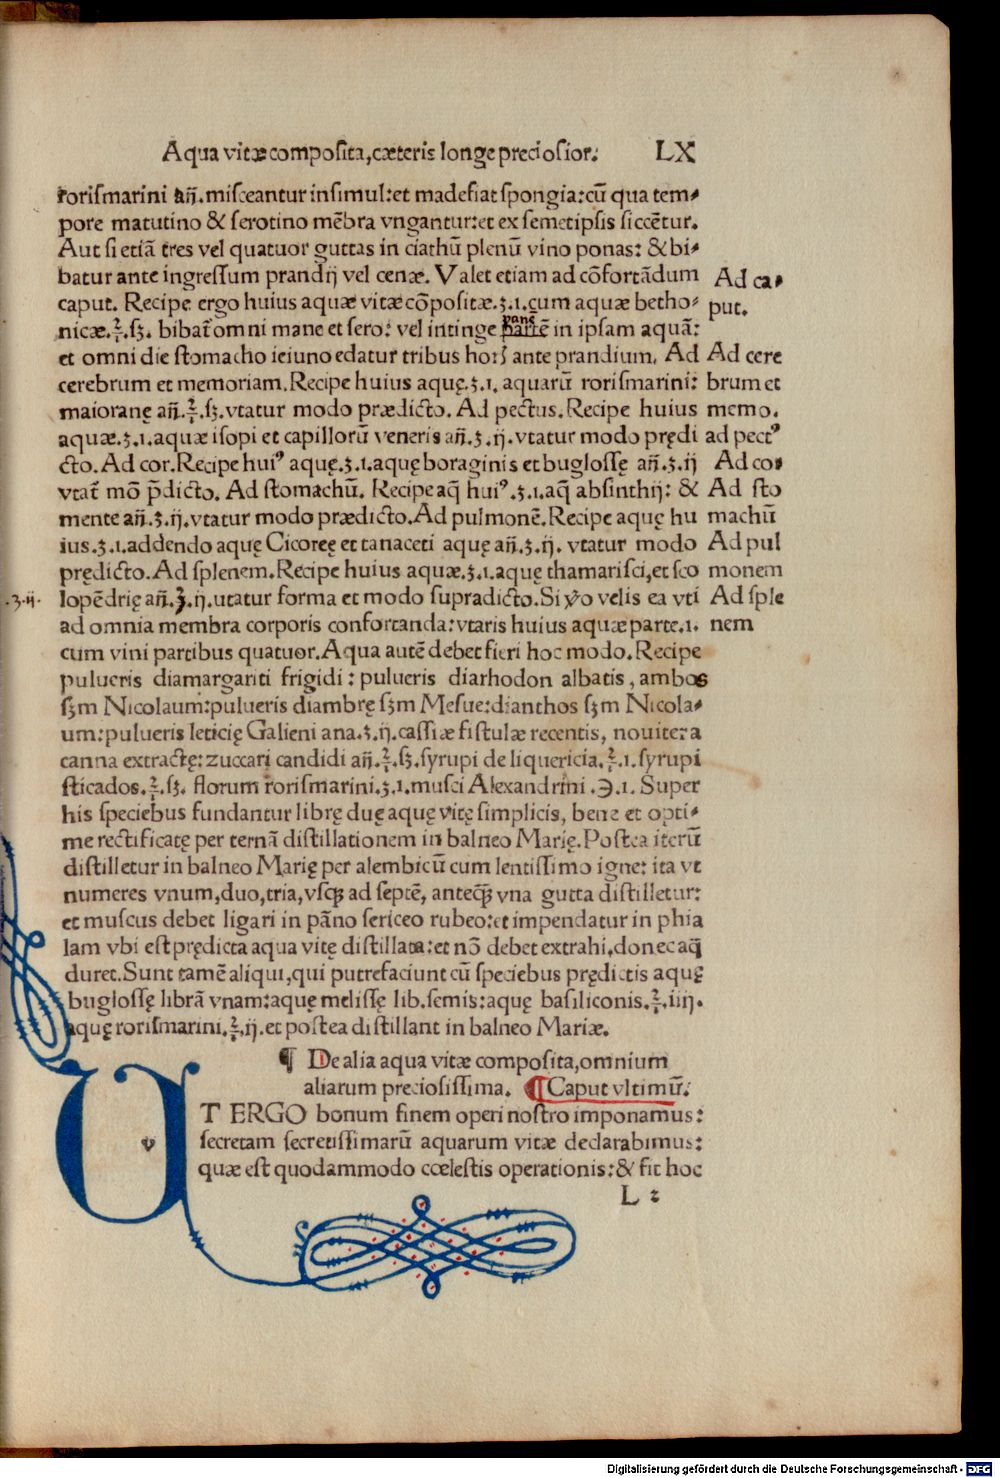 Aqua vitæ composita, cæteris longe preciosior. LX
rorismarini añ. misceantur insimul: et madefiat spongia: cū qua tem-
pore matutino & serotino mēbra vngantur: et ex semetipsis siccētur.
Aut si etiā tres vel quatuor guttas in ciathū plenū vino ponas: & bi-
batur ante ingressum prandij vel cenæ. Valet etiam ad cōfortādum
Ad ca-
caput. Recipe ergo huius aquæ vitæ cōpositæ.ʒ.1. cum aquæ betho-
put.
nicæ.℥.sʒ. bibat̄ omni mane et sero: vel intinge partē in ipsam aquā:
panē
et omni die stomacho ieiuno edatur tribus hor̄ ante prandium. Ad
Ad cere
cerebrum et memoriam. Recipe huius aquę.ʒ.1. aquarū rorismarini:
brum et
maioranę añ.℥.sʒ. vtatur modo prædicto. Ad pectus. Recipe huius
memo.
aquæ.ʒ.1. aquæ isopi et capillorū veneris añ.ʒ.ij. vtatur modo prędi
ad pectꝰ
cto. Ad cor. Recipe huiꝰ aquę.ʒ.1. aquę boraginis et buglossę añ.ʒ.ij
Ad cor
vtat̄ mō p̄dicto. Ad stomachū. Recipe aq̄ huiꝰ.ʒ.1. aq̄ absinthij: &
Ad sto
mente añ.ʒ.ij. vtatur modo prædicto. Ad pulmonē. Recipe aquę hu
machū
ius.ʒ.1. addendo aquę Cicoreę et tanaceti aquę añ.ʒ.ij. vtatur modo
Ad pul
prędicto. Ad splenem. Recipe huius aquæ.ʒ.1. aquę thamarisci, et sco
monem
.ʒ.ij.
lopēdrię añ.ʒ.ij. utatur forma et modo supradicto. Si ꝟo velis ea vti
Ad sple
ad omnia membra corporis confortanda: vtaris huius aquæ parte.1.
nem
cum vini partibus quatuor. Aqua autē debet fieri hoc modo. Recipe
pulueris diamargariti frigidi: pulueris diarhodon albatis, ambos
sʒm Nicolaum: pulueris diambrę sʒm Mesue: dianthos sʒm Nicola-
um: pulueris leticię Galieni ana.ʒ.ij. cassiæ fistulæ recentis, nouiter a
canna extractę: zuccari candidi añ.℥.sʒ. syrupi de liquericia.℥.1. syrupi
sticados.℥.sʒ. florum rorismarini.ʒ.1. musci Alexandrini.℈.1. Super
his speciebus fundantur librę duę aquę vitę simplicis, bene et opti-
me rectificatę per ternā distillationem in balneo Marię. Postea iterū
distilletur in balneo Marię per alembicū cum lentissimo igne: ita vt
numeres vnum, duo, tria, vsqꝫ ad septē, anteqꝫ vna gutta distilletur:
et muscus debet ligari in pāno sericeo rubeo: et impendatur in phia
lam vbi est prędicta aqua vitę distillata: et nō debet extrahi, donec aq̄
duret. Sunt tamē aliqui, qui putrefaciunt cū speciebus prędictis aquę
buglossę librā vnam: aquę melissę lib. semis: aquę basiliconis.℥.iiij.
aquę rorismarini.℥.ij. et postea distillant in balneo Mariæ.
¶ De alia aqua vitæ composita, omnium
aliarum preciosissima. ¶ Caput vltimū.
VT ERGO bonum finem operi nostro imponamus:
secretam secretissimarū aquarum vitæ declarabimus:
quæ est quodammodo cœlestis operationis: & fit hoc
L 2
Digitalisierung gefördert durch die Deutsche Forschungsgemeinschaft - DFG